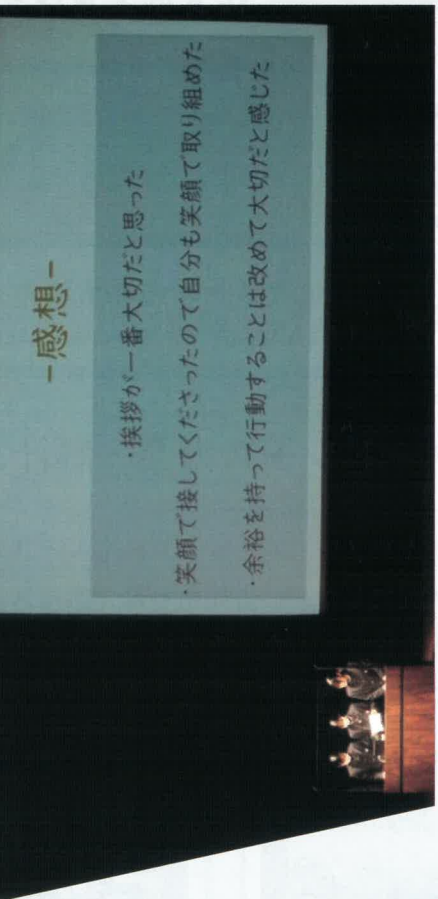 -感想-
・挨拶が一番大切だと思った
・笑顔で接してくださったので自分も笑顔で取り組めた
・余裕を持って行動することは改めて大切だと感じた